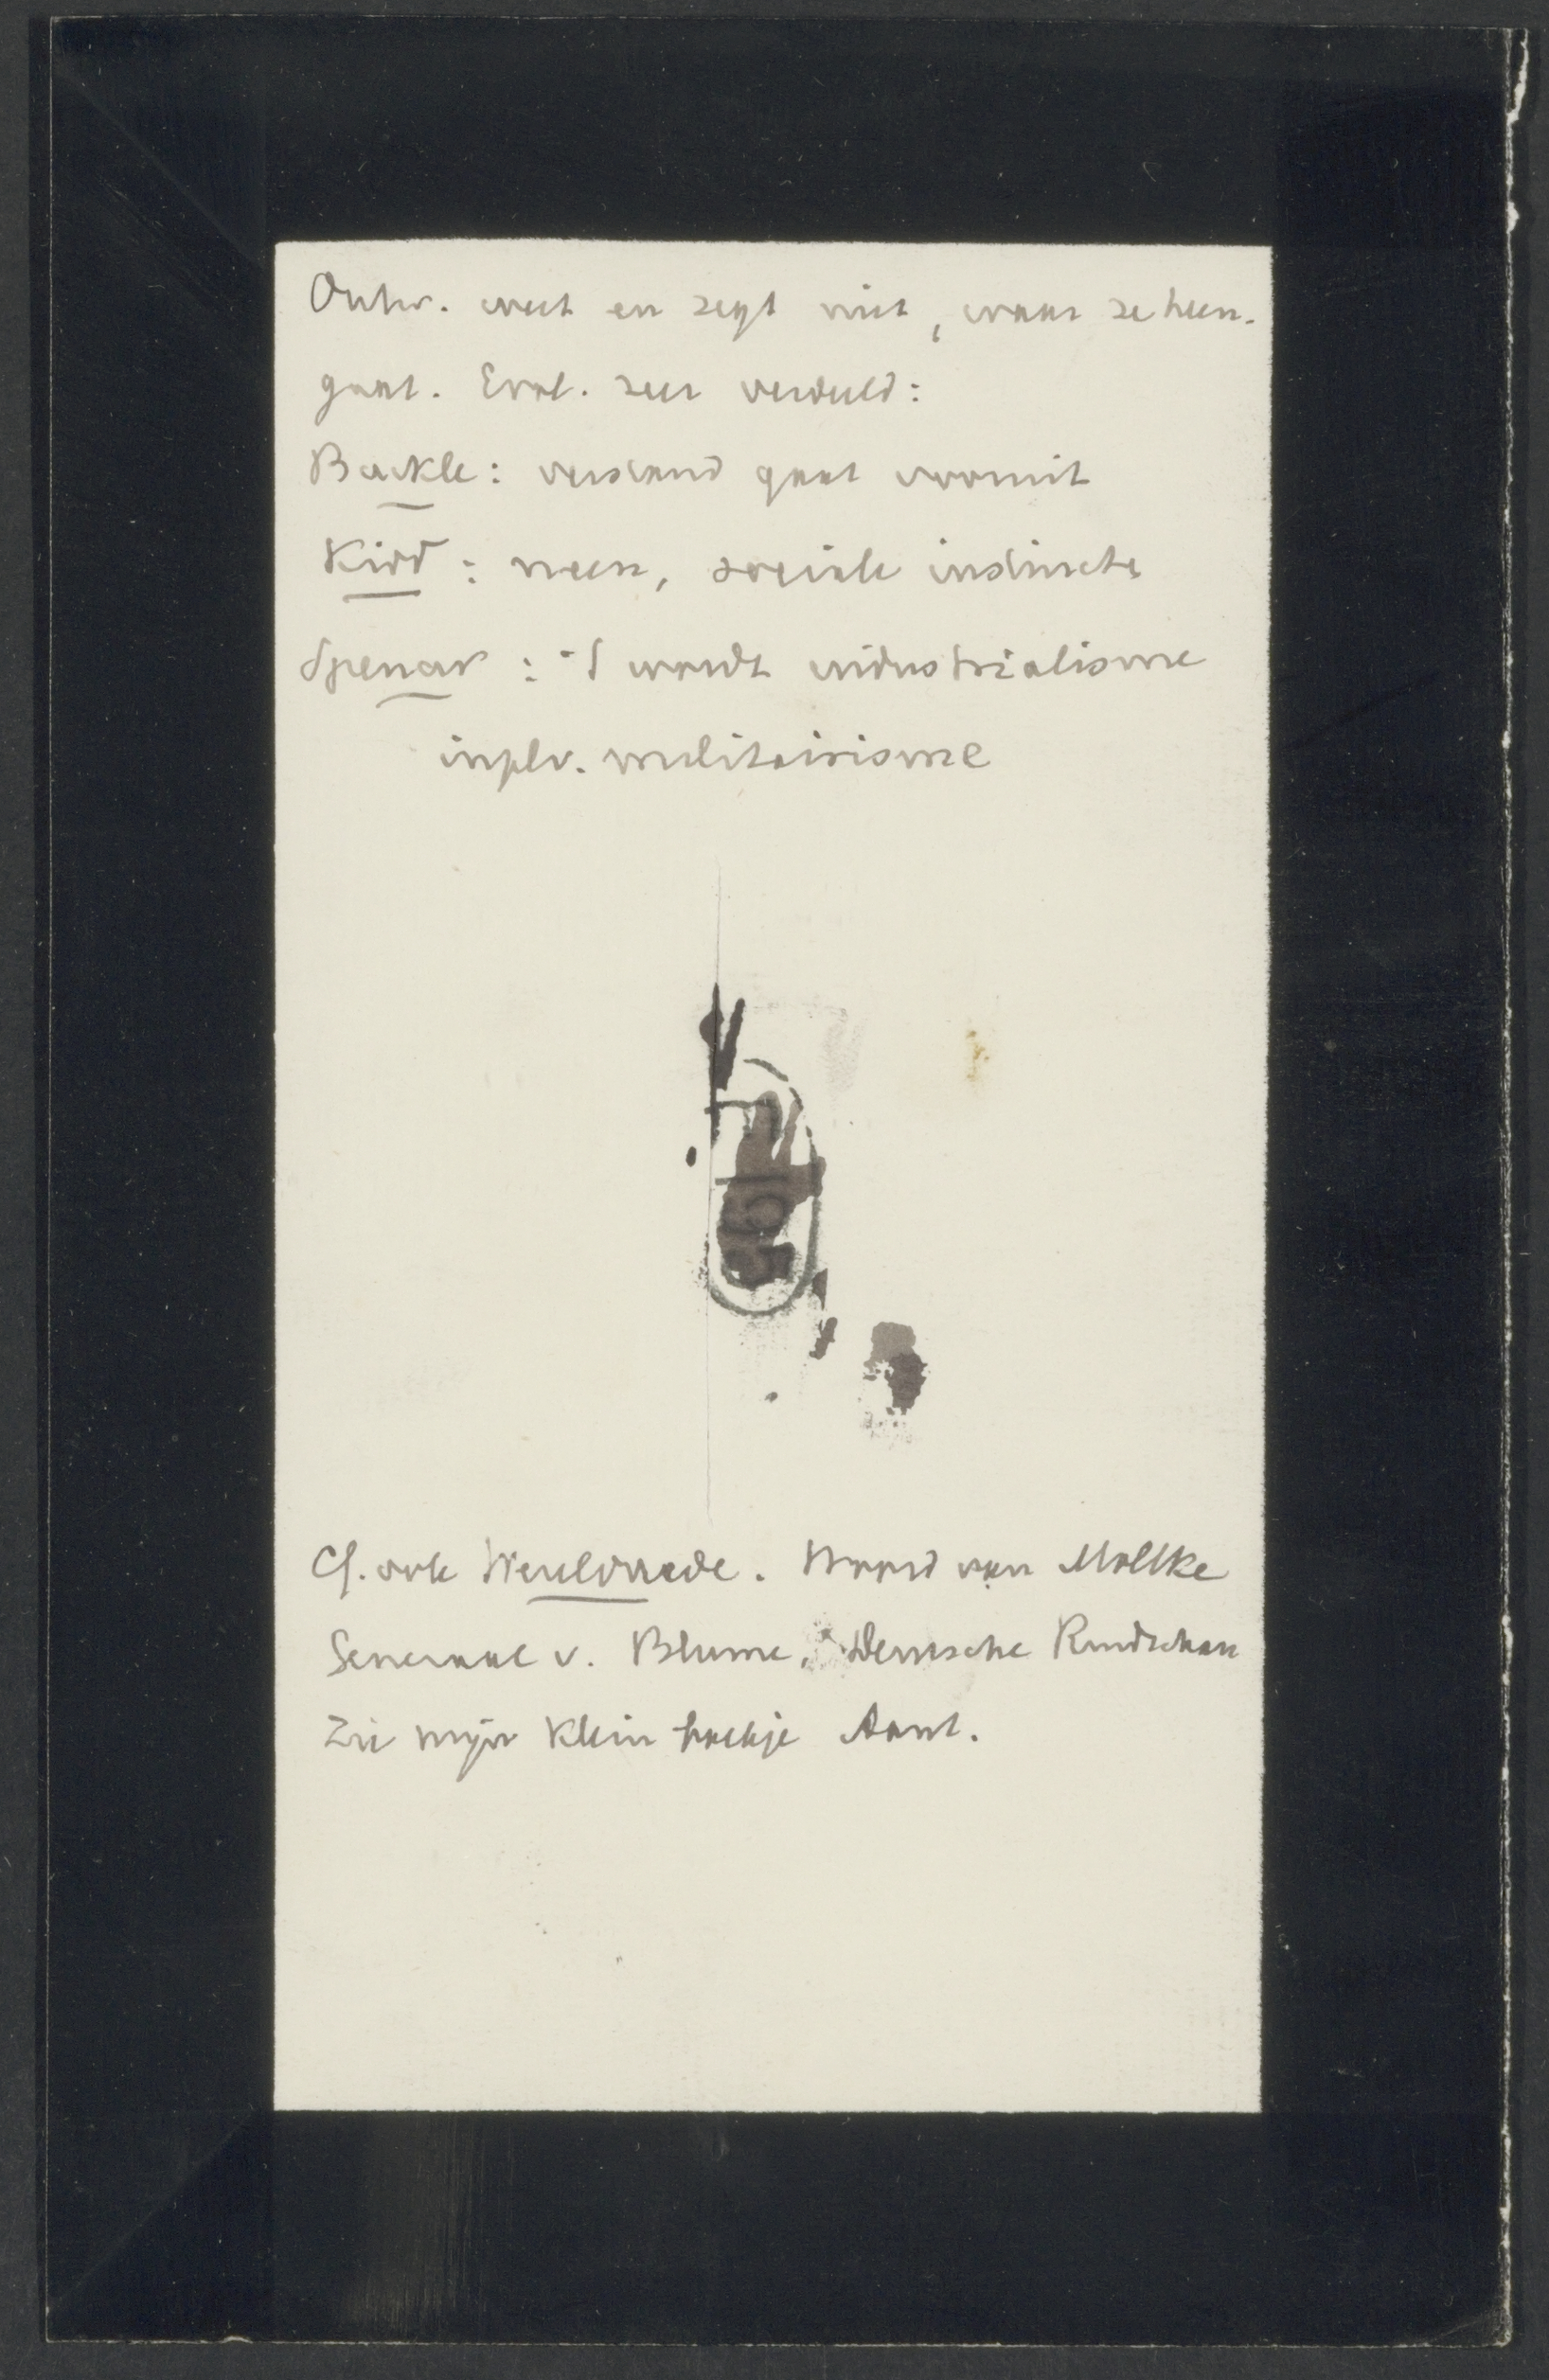 Ontw. weet en zegt niet, waar ze heen-
gaat. Evol. zeer verduld:
Buckle: verstand gaat vooruit
Kidd: neen, sociale instincten
Spencer: 't wordt industrialisme
inplv. militairisme
Cf. ook Wereldvrede. Woord van Moltke
Generaal v. Blume, Deutsche Rundschau
Zie mijn klein boekje Aant.